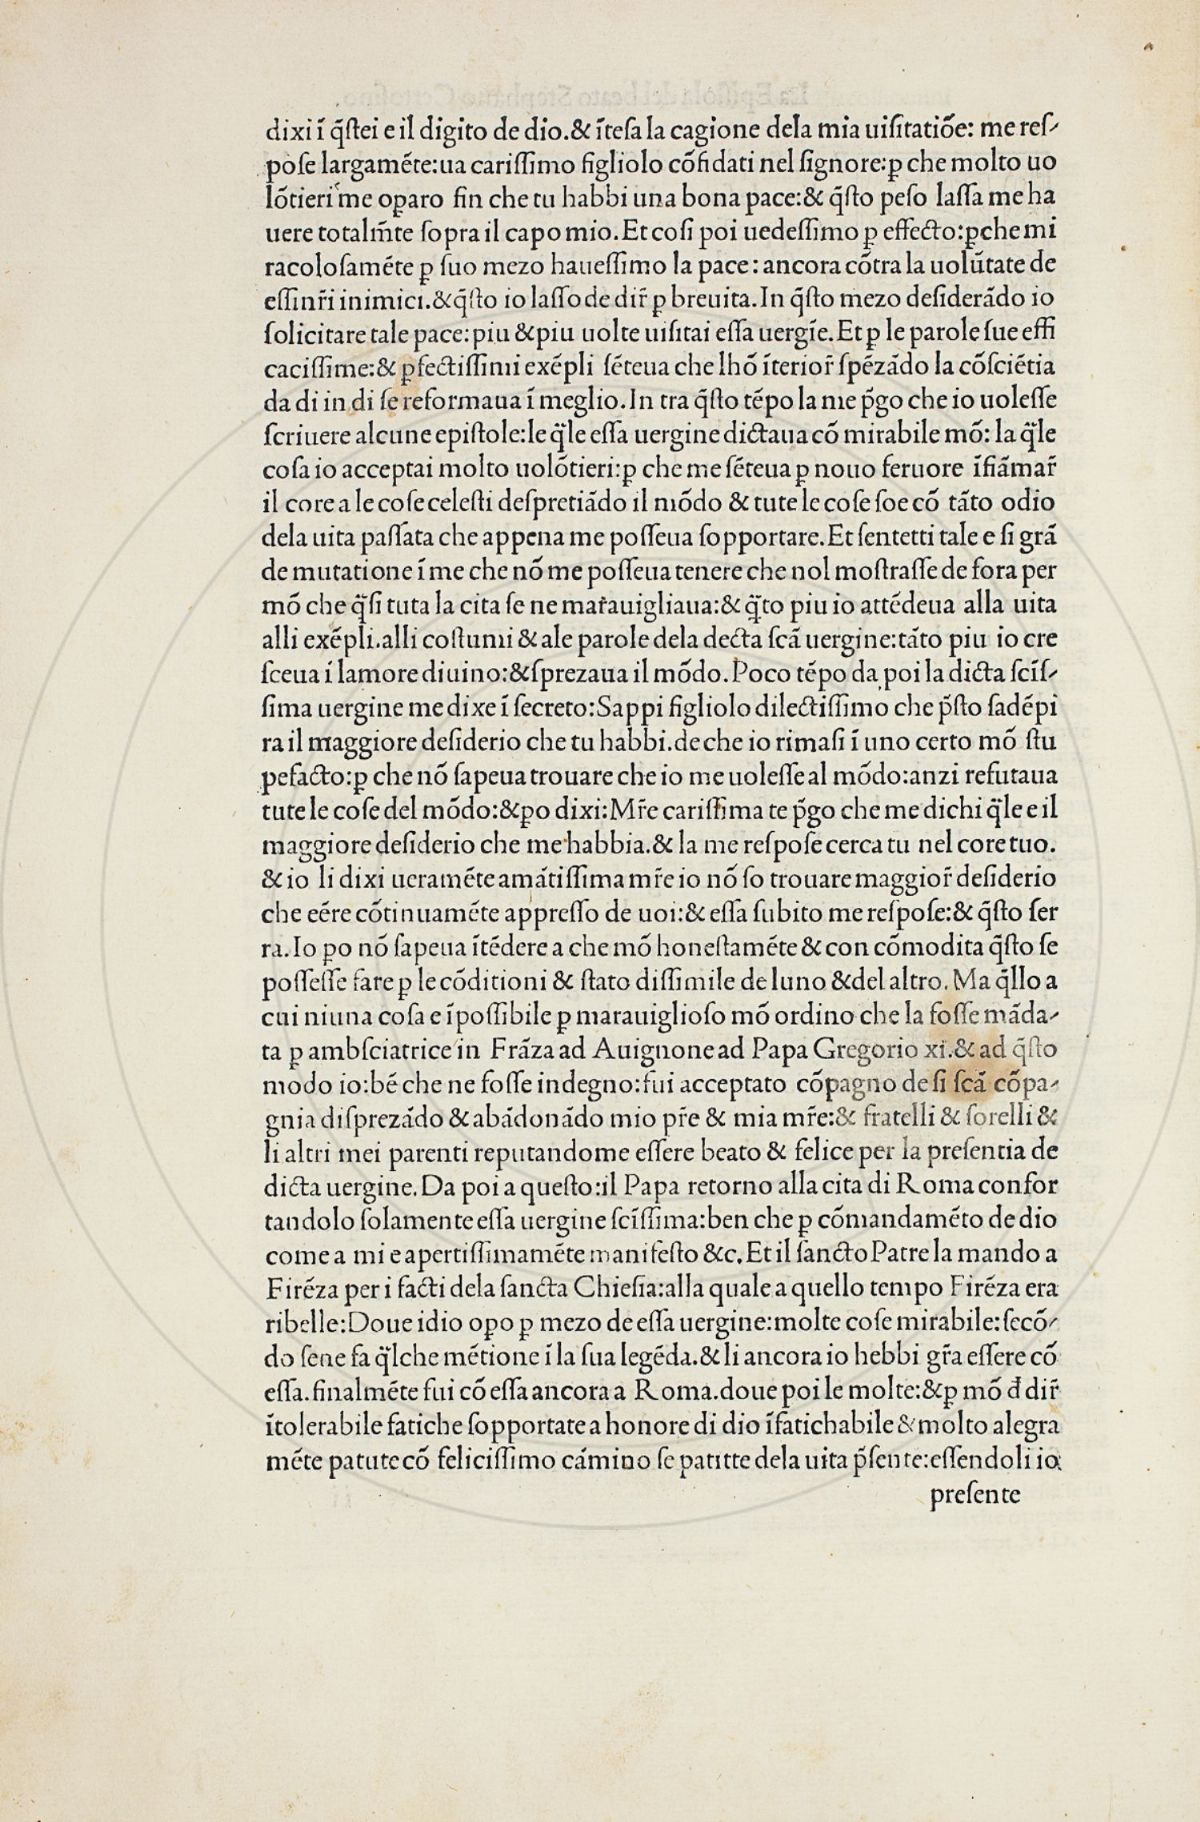 dixi ī q̄stei e il digito de dio.& ītesa la cagione dela mia uisitatiōe: me res-
pose largamēte:ua carissimo figliolo cōfidati nel signore:ꝑ che molto uo
lōtieri me oꝑaro fin che tu habbi una bona pace:& q̄sto peso lassa me ha
uere totalm̄te sopra il capo mio.Et cosi poi uedessimo ꝑ effecto:ꝑche mi
racolosamēte ꝑ suo mezo hauessimo la pace: ancora cōtra la uolūtate de
essinr̄i inimici.&q̄sto io lasso de dir̄ ꝑ breuita.In q̄sto mezo desiderādo io
solicitare tale pace:piu &piu uolte uisitai essa uergīe.Et ꝑ le parole sue effi
cacissime:& ꝑfectissimi exēpli sēteua che lhō īterior̄ spēzādo la cōsciētia
da di in di se reformaua ī meglio.In tra q̄sto tēpo la me p̄go che io uolesse
scriuere alcune epistole:le q̄le essa uergine dictaua cō mirabile mō: la q̄le
cosa io acceptai molto uolōtieri:ꝑ che me sēteua ꝑ nouo feruore īfiāmar̄
il core a le cose celesti despretiādo il mōdo & tute le cose soe cō tāto odio
dela uita passata che appena me posseua sopportare.Et sentetti tale e si grā
de mutatione ī me che nō me posseua tenere che nol mostrasse de fora per
mō che q̄si tuta la cita se ne marauigliaua:& q̄to piu io attēdeua alla uita
alli exēpli.alli costumi & ale parole dela decta scā uergine:tāto piu io cre
sceua ī lamore diuino:&sprezaua il mōdo.Poco tēpo da poi la dicta scīs-
sima uergine me dixe ī secreto:Sappi figliolo dilectissimo che p̄sto sadēpi
ra il maggiore desiderio che tu habbi.de che io rimasi ī uno certo mō stu
pefacto:ꝑ che nō sapeua trouare che io me uolesse al mōdo:anzi refutaua
tute le cose del mōdo:&ꝑo dixi:Mr̄e carissima te p̄go che me dichi q̄le e il
maggiore desiderio che me habbia.& la me respose cerca tu nel core tuo.
& io li dixi ueramēte amātissima mr̄e io nō so trouare maggior̄ desiderio
che eēre cōtinuamēte appresso de uoi:& essa subito me respose:& q̄sto ser
ra.Io ꝑo nō sapeua ītēdere a che mō honestamēte & con cōmodita q̄sto se
possesse fare ꝑ le cōditioni & stato dissimile de luno &del altro.Ma q̄llo a
cui niuna cosa e īpossibile ꝑ marauiglioso mō ordino che la fosse māda-
ta ꝑ ambsciatrice in Frāza ad Auignone ad Papa Gregorio xi.& ad q̄sto
modo io:bē che ne fosse indegno:fui acceptato cōpagno de si scā cōpa-
gnia disprezādo & abādonādo mio pr̄e & mia mr̄e:& fratelli & sorelli &
li altri mei parenti reputandome essere beato & felice per la presentia de
dicta uergine.Da poi a questo:il Papa retorno alla cita di Roma confor
tandolo solamente essa uergine scīssima:ben che ꝑ cōmandamēto de dio
come a mi e apertissimamēte manifesto &c.Et il sancto Patre la mando a
Firēza per i facti dela sancta Chiesia:alla quale a quello tempo Firēza era
ribelle:Doue idio oꝑo ꝑ mezo de essa uergine:molte cose mirabile:secō-
do sene fa q̄lche mētione ī la sua legēda.& li ancora io hebbi gr̄a essere cō
essa.finalmēte fui cō essa ancora a Roma.doue poi le molte:&ꝑ mō đ dir̄
ītolerabile fatiche sopportate a honore di dio īfatichabile & molto alegra
mēte patute cō felicissimo cāmino se patitte dela uita p̄sente:essendoli io
presente